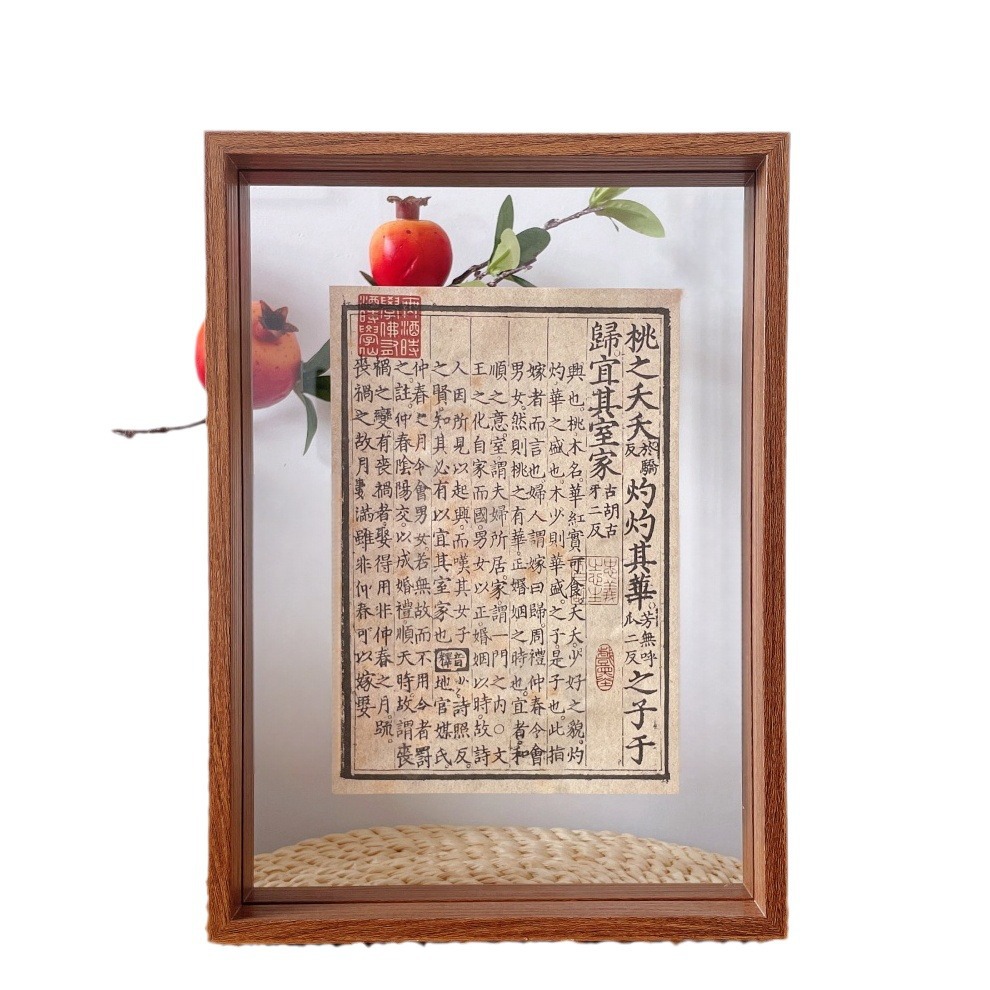 桃之夭夭於驕反灼灼其華芳無呼瓜二反。之子于
歸宜其室家古胡古牙二反
興也。桃木名。華紅實可食。夭夭。少好之貌。灼
灼。華之盛也。木少則華盛。之子。是子也。此指
嫁者而言也。婦人謂嫁曰歸。周禮仲春令會
男女。然則桃之有華。正婚姻之時也。宜者。和
順之意。室謂夫婦所居。家謂一門之内○文
王之化自家而國。男女以正。婚姻以時。故詩
人因所見以起興。而嘆其女子
之賢。知其必有以宜其室家也
音釋
少。詩照反。
地官媒氏。
仲春之月令會男女若無故而不用令者罰
之註。仲春陰陽交以成婚禮順天時。故謂喪
禍之變有喪禍者娶得用非仲春之月。
喪禍之故月數滿雖非仲春可以嫁娶